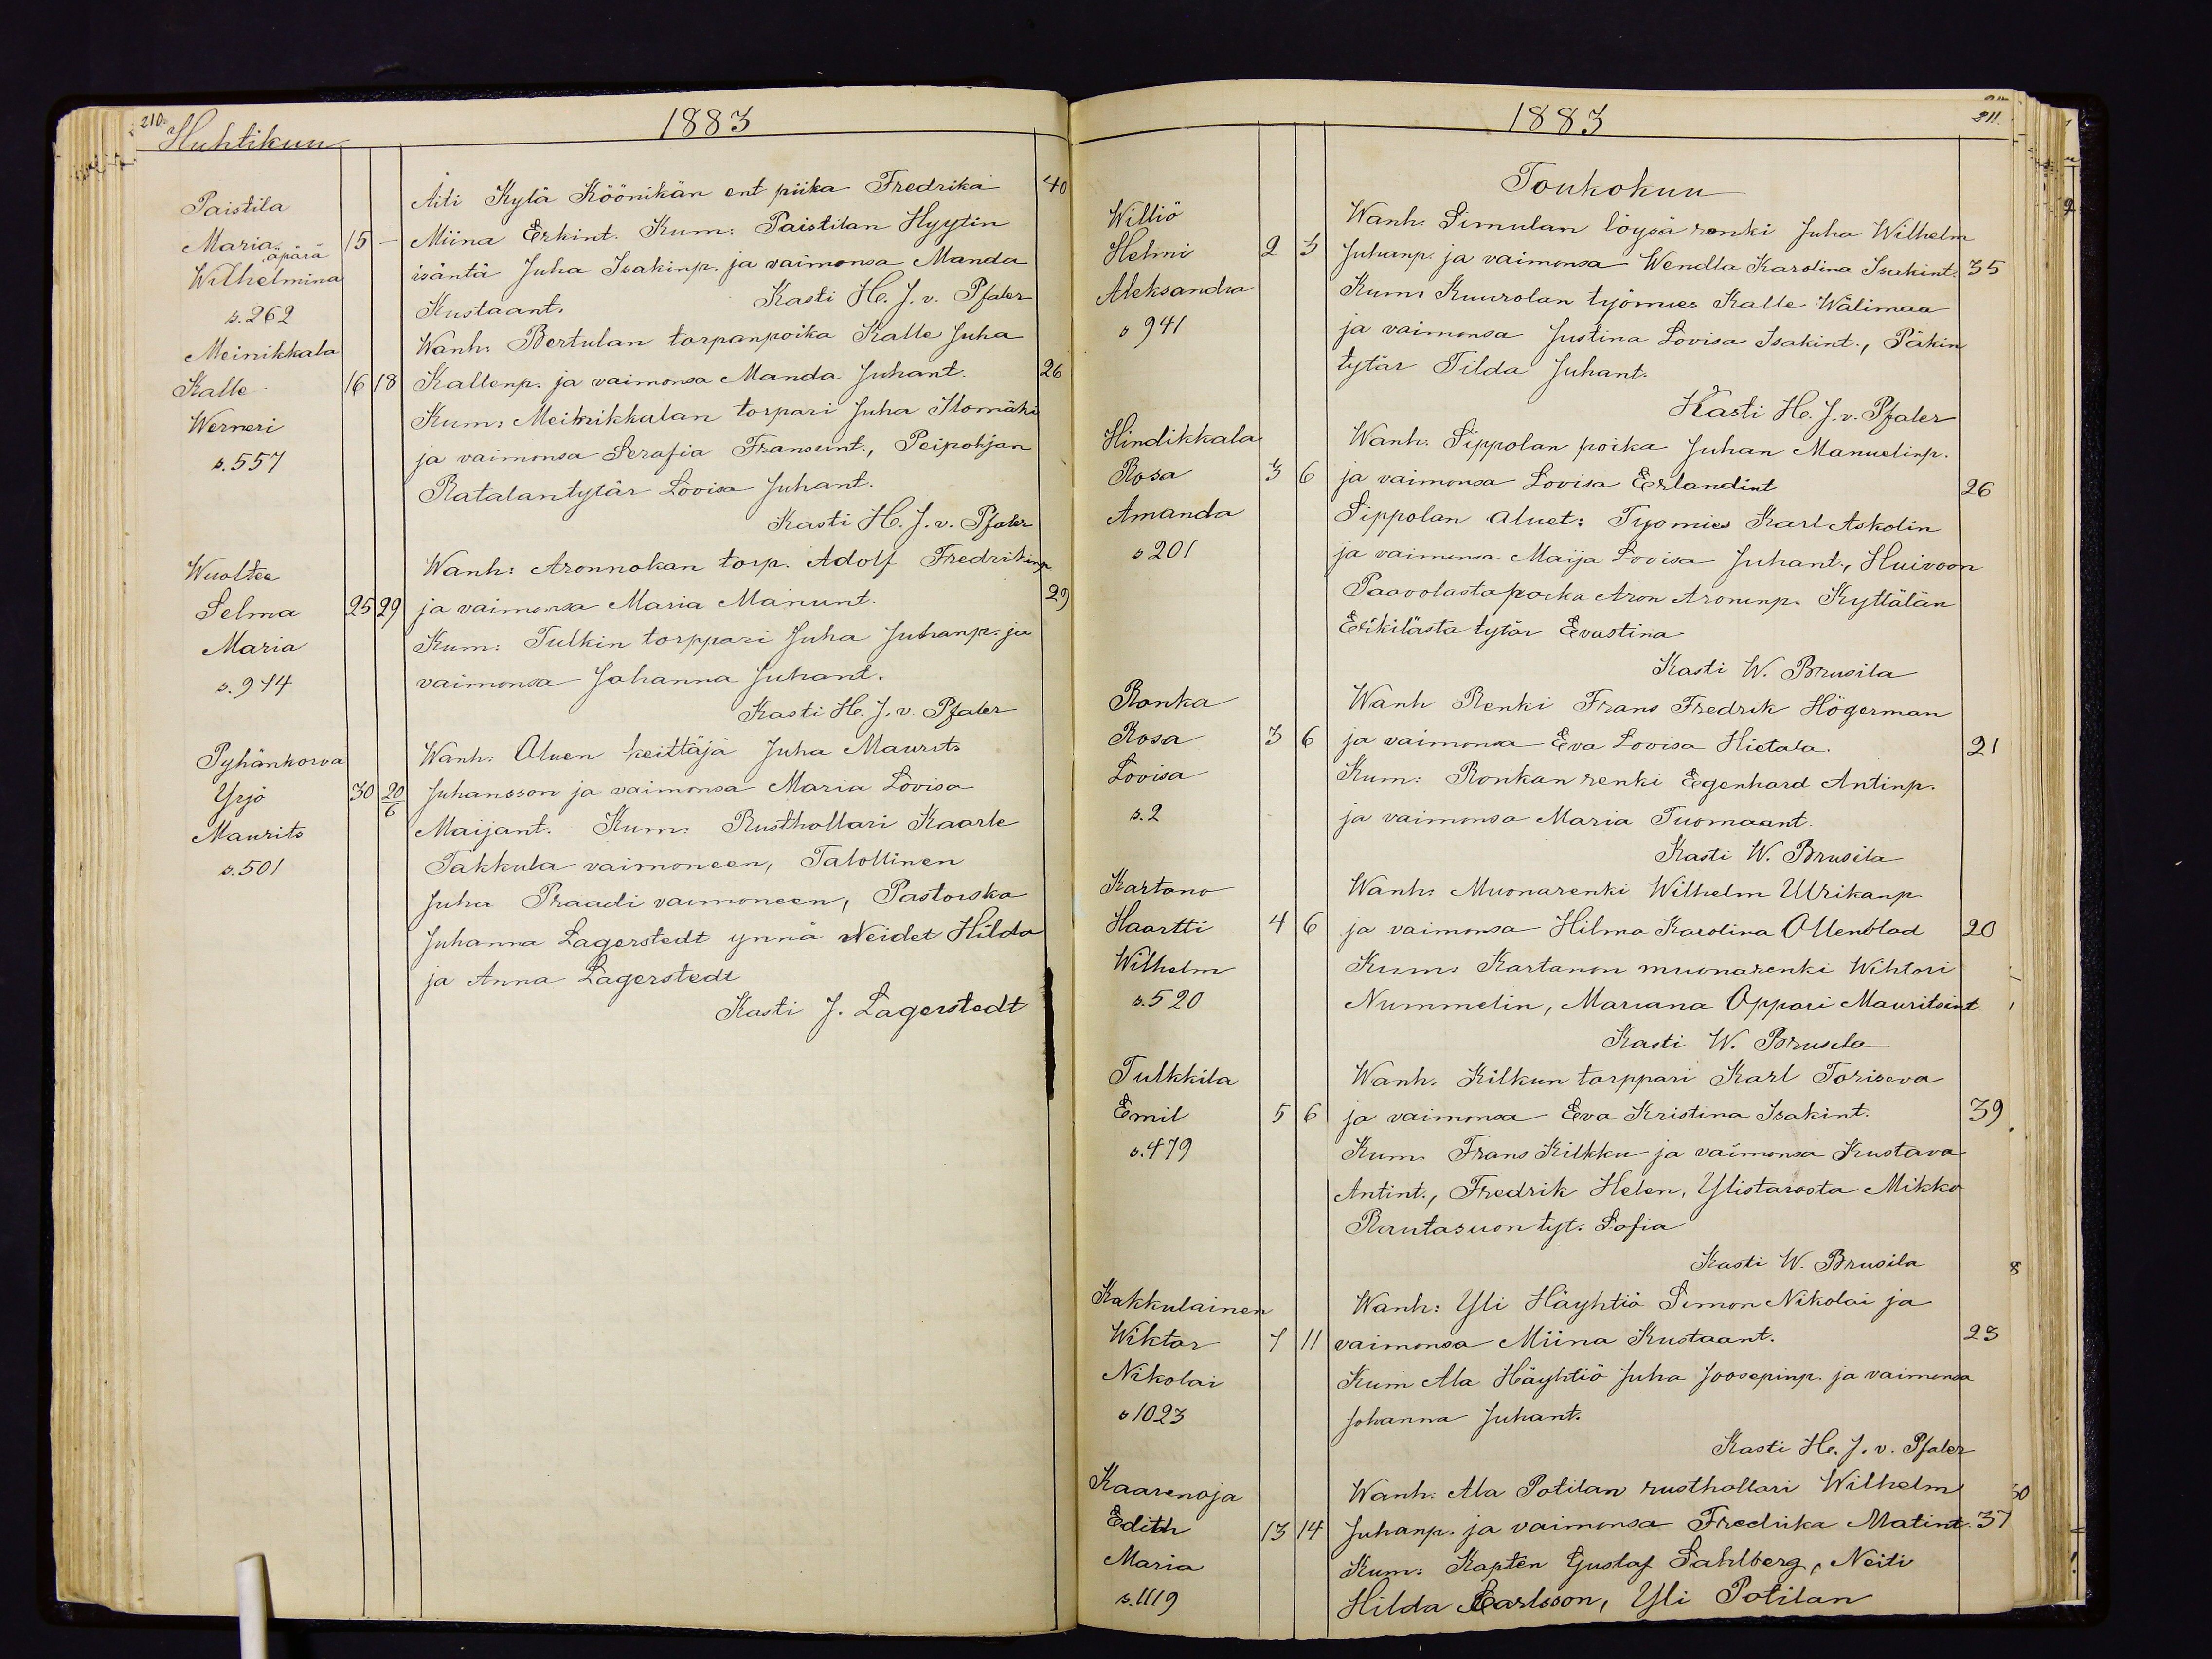 210.
Huhtikuu
1883
Paistila
Äiti Kylä Köönikän ent piika Fredrika 40
Maria 15 - Miina Erkint. Kum: Paistilan Hyytin
äpärä
Wilhelmina isäntä Juha Isakinp. ja vaimonsa Manda
s. 262 Kustaant. Kasti H. J. v. Pfaler
Meinikkala Wanh: Bertulan torpanpoika Kalle Juha
Kalle 16 18 Kallenp. ja vaimonsa Manda Juhant. 26
Werneri Kum: Meinikkalan torpari Juha Ilomäki
s. 557 ja vaimonsa Serafia Fransunt., Peipohjan
Ratalantytär Lovisa Juhant.
Kasti H. J. v. Pfaler
Wuoltee Wanh: Aronnokan torp. Adolf Fredrikinp
Selma 25 29 ja vaimonsa Maria Manunt. 29
Maria Kum: Tulkin torppari Juha Juhanp. ja
s. 914 vaimonsa Johanna Juhant.
Kasti H. J. v. Pfaler
Pyhänkorva Wanh: Oluen keittäjä Juha Maurits
Yrjö 30 20/6 Juhansson ja vaimonsa Maria Lovisa
Maurits Maijant. Kum: Rusthollari Kaarle
s. 501 Takkula vaimoneen, Talollinen
Juha Praadi vaimoneen, Pastorska
Juhanna Lagerstedt ynnä Neidet Hilda
ja Anna Lagerstedt
Kasti J. Lagerstedt
1883
211.
Toukokuu
Williö Wanh: Simulan löysä renki Juha Wilhelm
Helmi 2 3 Juhanp. ja vaimonsa Wendla Karolina Isakint. 35
Aleksandra Kum: Kuurolan työmies Kalle Wälimaa
s 941 ja vaimonsa Justina Lovisa Isakint., Päkin
tytär Tilda Juhant.
Kasti H. J. v. Pfaler
Hindikkala Wanh: Sippolan poika Juhan Manuelinp.
Rosa 3 6 ja vaimonsa Lovisa Erlandint 26
Amanda Sippolan aluet: Työmies Karl Askolin
s 201 ja vaimonsa Maija Lovisa Juhant., Huivoon
Paavolasta poika Aron Aroninp. Kyttälän
Erikilästa tytär Evastina
Kasti W. Brusila
Ronka Wanh Renki Frans Fredrik Högerman
Rosa 3 6 ja vaimonsa Eva Lovisa Hietala. 21
Lovisa Kum: Ronkan renki Egenhard Antinp.
s. 2 ja vaimonsa Maria Tuomaant.
Kasti W. Brusila
Kartano Wanh: Muonarenki Wilhelm Ulrikanp
Haartti 4 6 ja vaimonsa Hilma Karolina Ollenblad 20
Wilhelm Kum: Kartanon muonarenki Wihtori
s. 520 Nummelin, Mariana Oppari Mauritsint.
Kasti W. Brusila
Tulkkila Wanh. Kilkun torppari Karl Toriseva
Emil 5 6 ja vaimonsa Eva Kristina Isakint. 39
s. 479 Kum. Frans Kilkku ja vaimonsa Kustava
Antint., Fredrik Helen, Ylistarosta Mikko
Rautasuon tyt. Sofia
Kasti W. Brusila
Kakkulainen Wanh: Yli Häyhtiö Simon Nikolai ja
Wiktor 7 11 vaimonsa Miina Kustaant. 23
Nikolai Kum Ala Häyhtiö Juha Joosepinp. ja vaimonsa
s 1023 Johanna Juhant.
Kasti H. J. v. Pfaler
Kaarenoja Wanh: Ala Potilan rusthollari Wilhelm
Edith 13 14 Juhanp. ja vaimonsa Fredrika Matint. 37
Maria Kum: Kapten Gustaf Sahlberg, Neiti
s. 1119 Hilda Carlsson, Yli Potilan